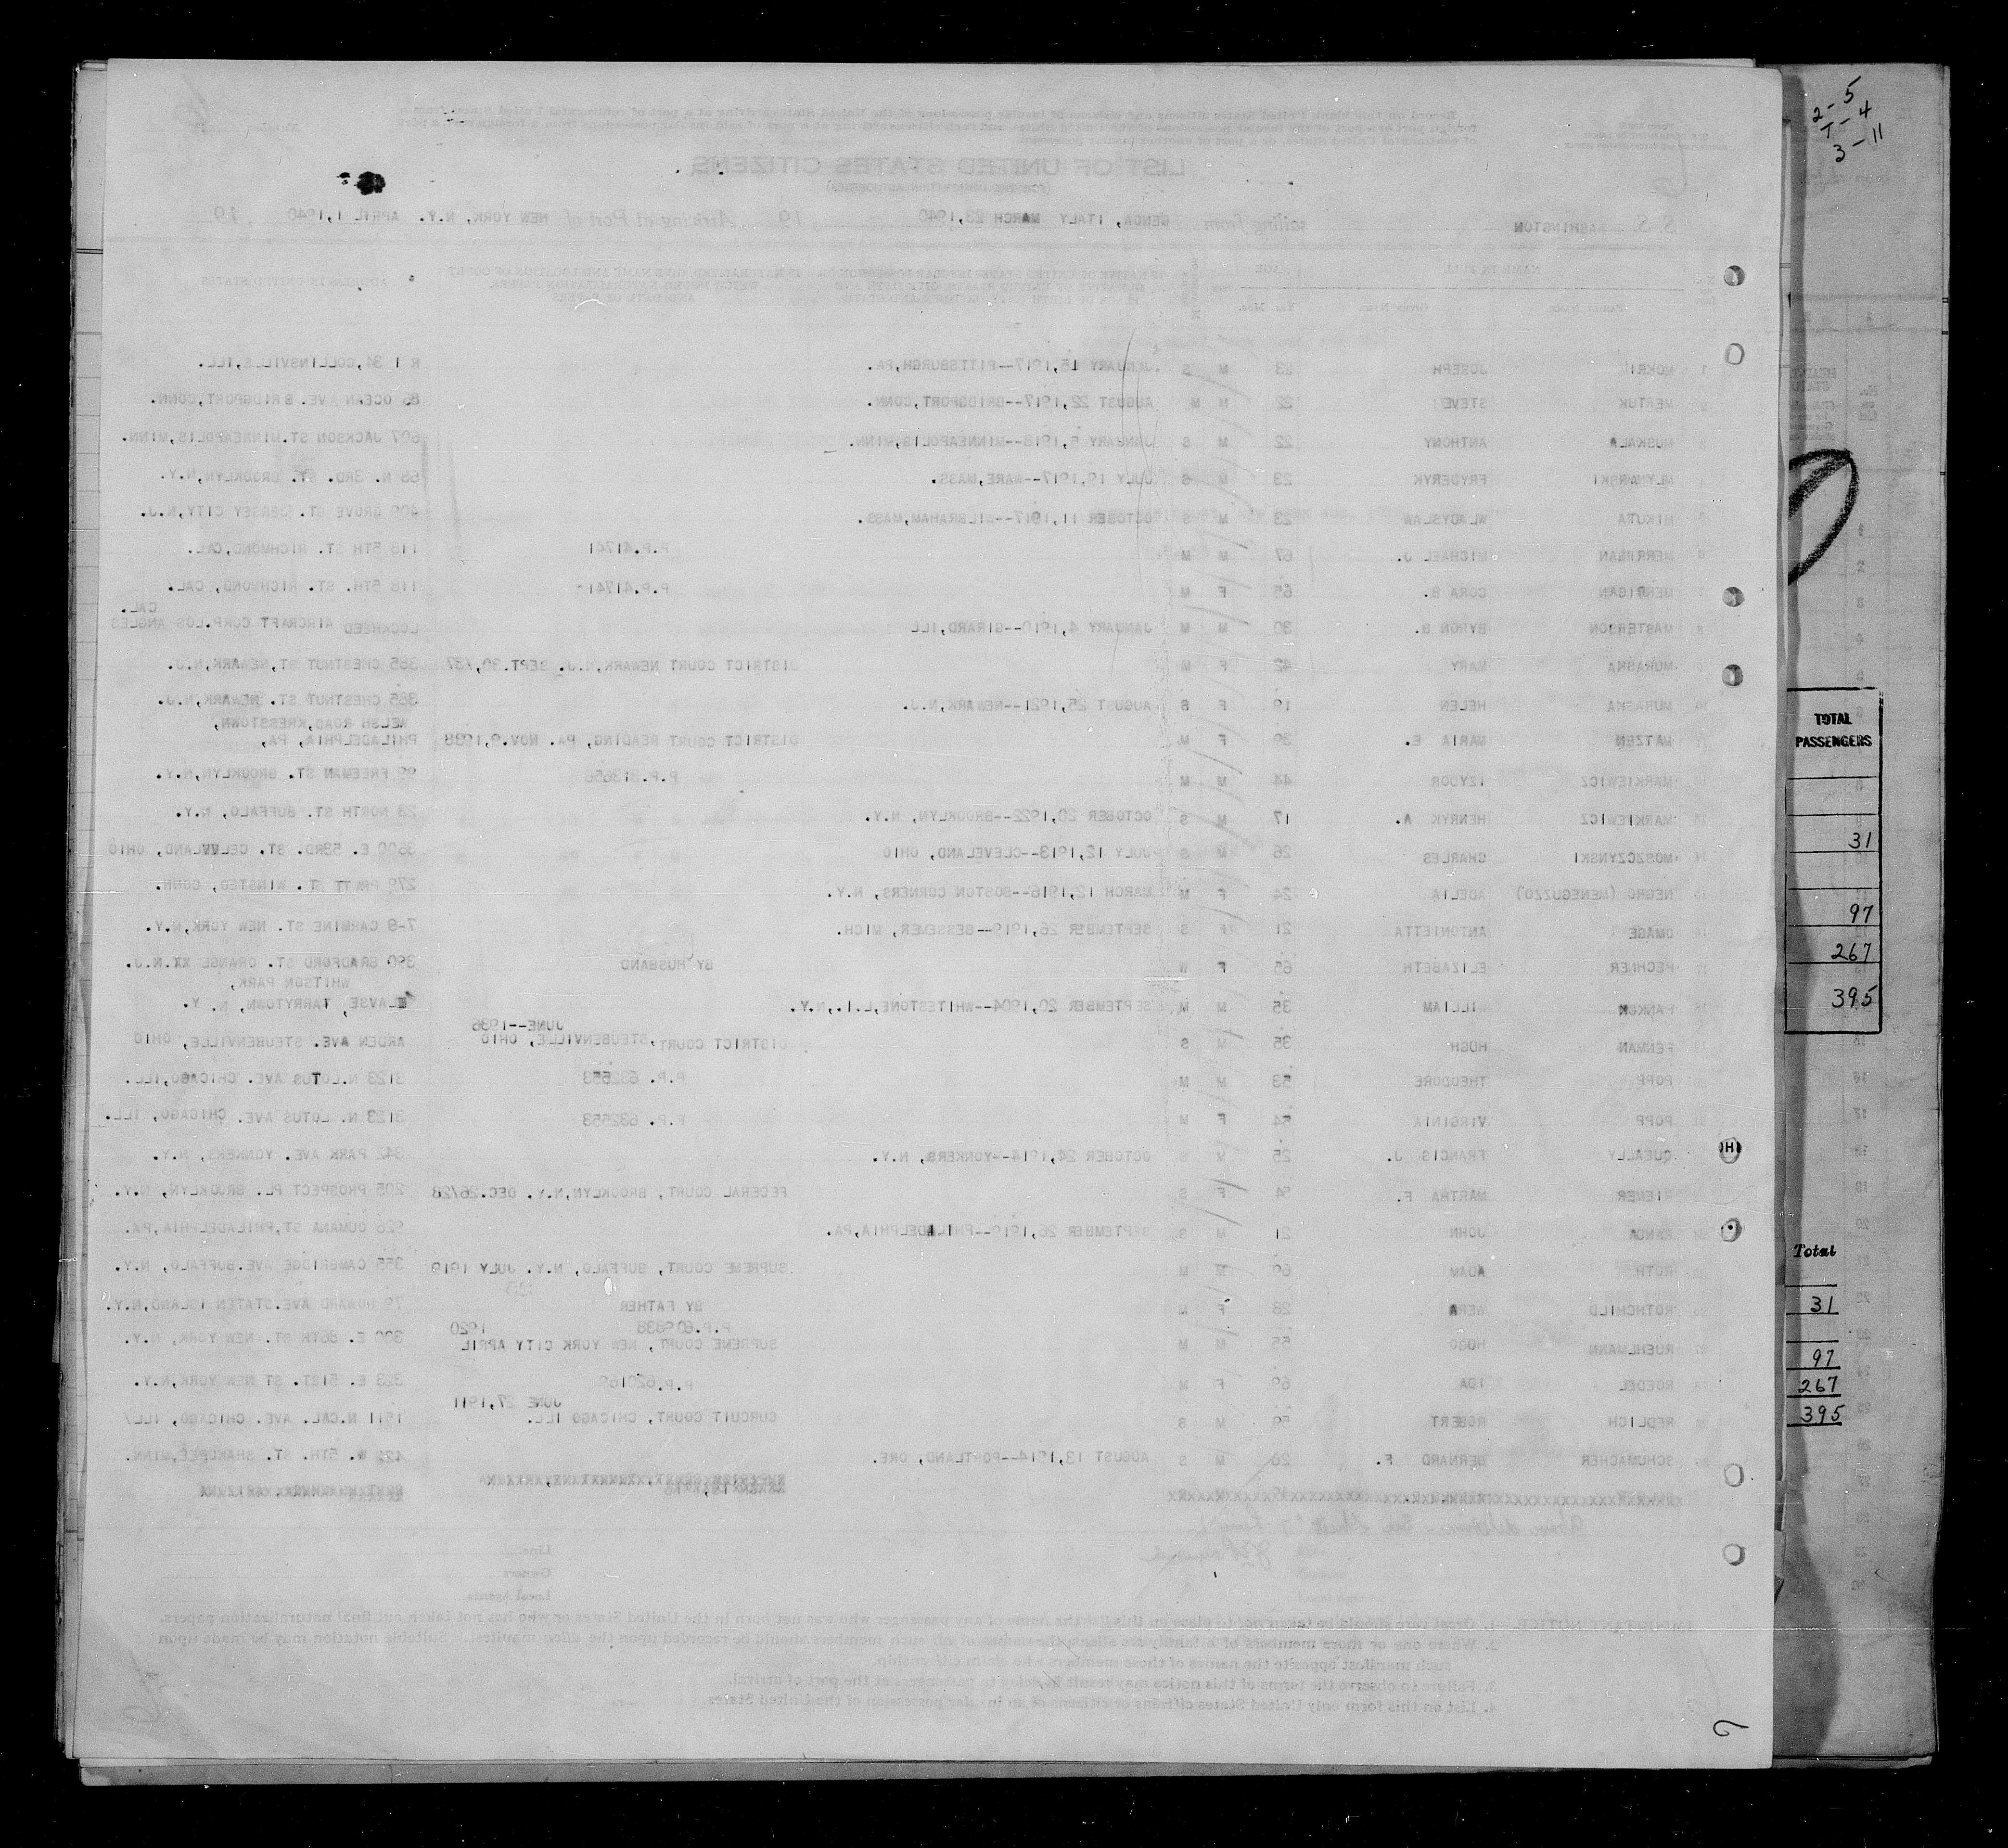 LIST OF UNITED STATES CITIZENS
(FOR THE IMMIGRATION AUTHORITIES)
S. S. WASHINGTON sailing from GENOA, ITALY MARCH 23,1940 19 Arriving at Port of NEW YORK, N.Y. APRIL 1,1940 , 19
NAME IN FULL AGE ADDRESS IN UNITED STATES
FAMILY NAME GIVEN NAME Yrs. Mos.
1 MOKRII JOSEPH 23 M S JANUARY 15,1917--PITTSBURGH,PA. R 1 31,COLLINSVILLE,ILL.
2 MERTUK STEVE 22 M M AUGUST 22,1917--BRIDGPORT,CONN. 86 OCEAN AVE. BRIDGPORT,CONN.
3 MUSKALA ANTHONY 22 M S JANUARY 5,1918--MINNEAPOLIS,MINN. 607 JACKSON ST.MINNEAPOLIS,MINN.
MLYNARSKI FRYDERYK 23 M S JULY 19,1917--WARE,MASS. 68 N. 3RD. ST. BROOKLYN,N.Y.
5 MIKUTA WLADYSLAW 23 M S OCTOBER 11,1917--WILBRAHAM,MASS. 409 GROVE ST. JERSEY CITY,N.J.
6 MERRIGAN MICHAEL J. 67 M M P.P.41741 118 5TH ST. RICHMOND,CAL.
7 MERRIGAN CORA B. 65 F M P.P.41741 118 5TH. ST. RICHMOND, CAL.
8 MASTERSON BYRON B. 30 M M JANUARY 4,1910--GIRARD,ILL LOCKHEED AIRCRAFT CORP.LOS ANGLES CAL.
9 MURASKA MARY 42 F M DISTRICT COURT NEWARK,N.J. SEPT.30,/37 385 CHESTNUT ST,NEWARK,N.J.
10 MURASKA HELEN 19 F S AUGUST 25,1921--NEWARK,N.J. 385 CHESTNUT ST. NEWARK,N.J.
WELSH ROAD,KRESSTOWN,
11 MATZEN MARIA E. 39 F M DISTRICT COURT READING, PA. NOV.9,1938 PHILADELPHIA, PA,
MARKIEWICZ IZYDOR 44 M M P.P.313658 99 FREEMAN ST. BROOKLYN,N.Y.
13 MARKIEWICZ HENRYK A. 17 M S OCTOBER 20,1922--BROOKLYN, N.Y. 23 NORTH ST. BUFFALO, N.Y.
14 MOSZCZYNSKI CHARLES 26 M S JULY 12,1913--CLEVELAND, OHIO 3600 E. 53RD. ST. CELEVELAND, OHIO
15 NEGRO (MENEGUZZO) ADELIA 24 F M MARCH 12,1916--BOSTON CORNERS, N.Y. 279 PRATT ST. WINSTED, CONN.
16 OMAGE ANTONIETTA 21 F S SEPTEMBER 26,1919--BESSEMER, MICH. 7-9 CARMINE ST. NEW YORK,N.Y.
17 PECHNER ELIZABETH 65 F W BY HUSBAND 390 BRADFORD ST. ORANGE XX.N.J.
WHITSON PARK,
18 PANKOK WILLIAM 35 M M SEPTEMBER 20,1904--WHITESTONE,L.I.,N.Y. ELAVSE, TARRYTOWN, N. Y.
JUNE--1936
19 PENMAN HUGH 35 M S DISTRICT COURT,STEUBENVILLE, OHIO ARDEN AVE. STEUBENVILLE, OHIO
POPP THEODORE 53 M M P.P. 632553 3123 N.LOTUS AVE. CHICAGO,ILL.
POPP VIRGINIA 54 F M P.P. 632553 3123 N. LOTUS AVE. CHICAGO, ILL.
QUEALLY FRANCIS J. 25 M S OCTOBER 24,1914--YONKERS, N.Y. 342 PARK AVE. YONKERS, N.Y.
RIEMER MARTHA F. 54 F S FEDERAL COURT, BROOKLYN,N.Y. DEC.26/28 205 PROSPECT PL. BROOKLYN, N.Y.
JOHN 21 M S SEPTEMBER 26,1919--PHILADELPHIA,PA. CUMANA ST,PHILADELPHIA,PA.
RUTH ADAM 69 M M SUPREME COURT, BUFFALO, N.Y. JULY 1919 355 CAMBRIDGE AVE.BUFFALO, N.Y.
ROTHCHILD WERA 28 F M BY FATHER 79 HOWARD AVE.STATEN ISLAND,N.Y.
P.P.609838 1920
27 RUEHLMANN HUGO 55 M M SUPREME COURT, NEW YORK CITY APRIL 300 E. 86TH ST. NEW YORK, N.Y.
ROEDEL IDA 69 F M P.P.620169 323 E. 51ST. ST NEW YORK,N.Y.
JUNE 27,1911
29 REDLICH ROBERT 59 M S CURCUIT COURT, CHICAGO ILL. 1511 N.CAL. AVE. CHICAGO, ILL/
30 SCHUMACHER BERNARD F. 26 M S AUGUST 13,1914--PORTLAND, ORE. 422 W. 5TH. ST. SHAKOPEE,MINN.
Line
Owners
Local Agents
IMPORTANT NOTICE.—1. Great care should be taken not to place on this list the name of any passenger who was not born in the United States or who has not taken out final naturalization papers.
2. Where one or more members of a family are aliens, the names of all such members should be recorded upon the alien manifest. Suitable notation may be made upon
such manifest opposite the names of those members who claim citizenship.
3. Failure to observe the terms of this notice may result in delay to passengers at the port of arrival.
4. List on this form only United States citizens or citizens of an insular possession of the United States.
6
2 - 5
1 - 4
3 - 11
TOTAL
PASSENGERS
31
97
267
395
Total
31
97
267
395